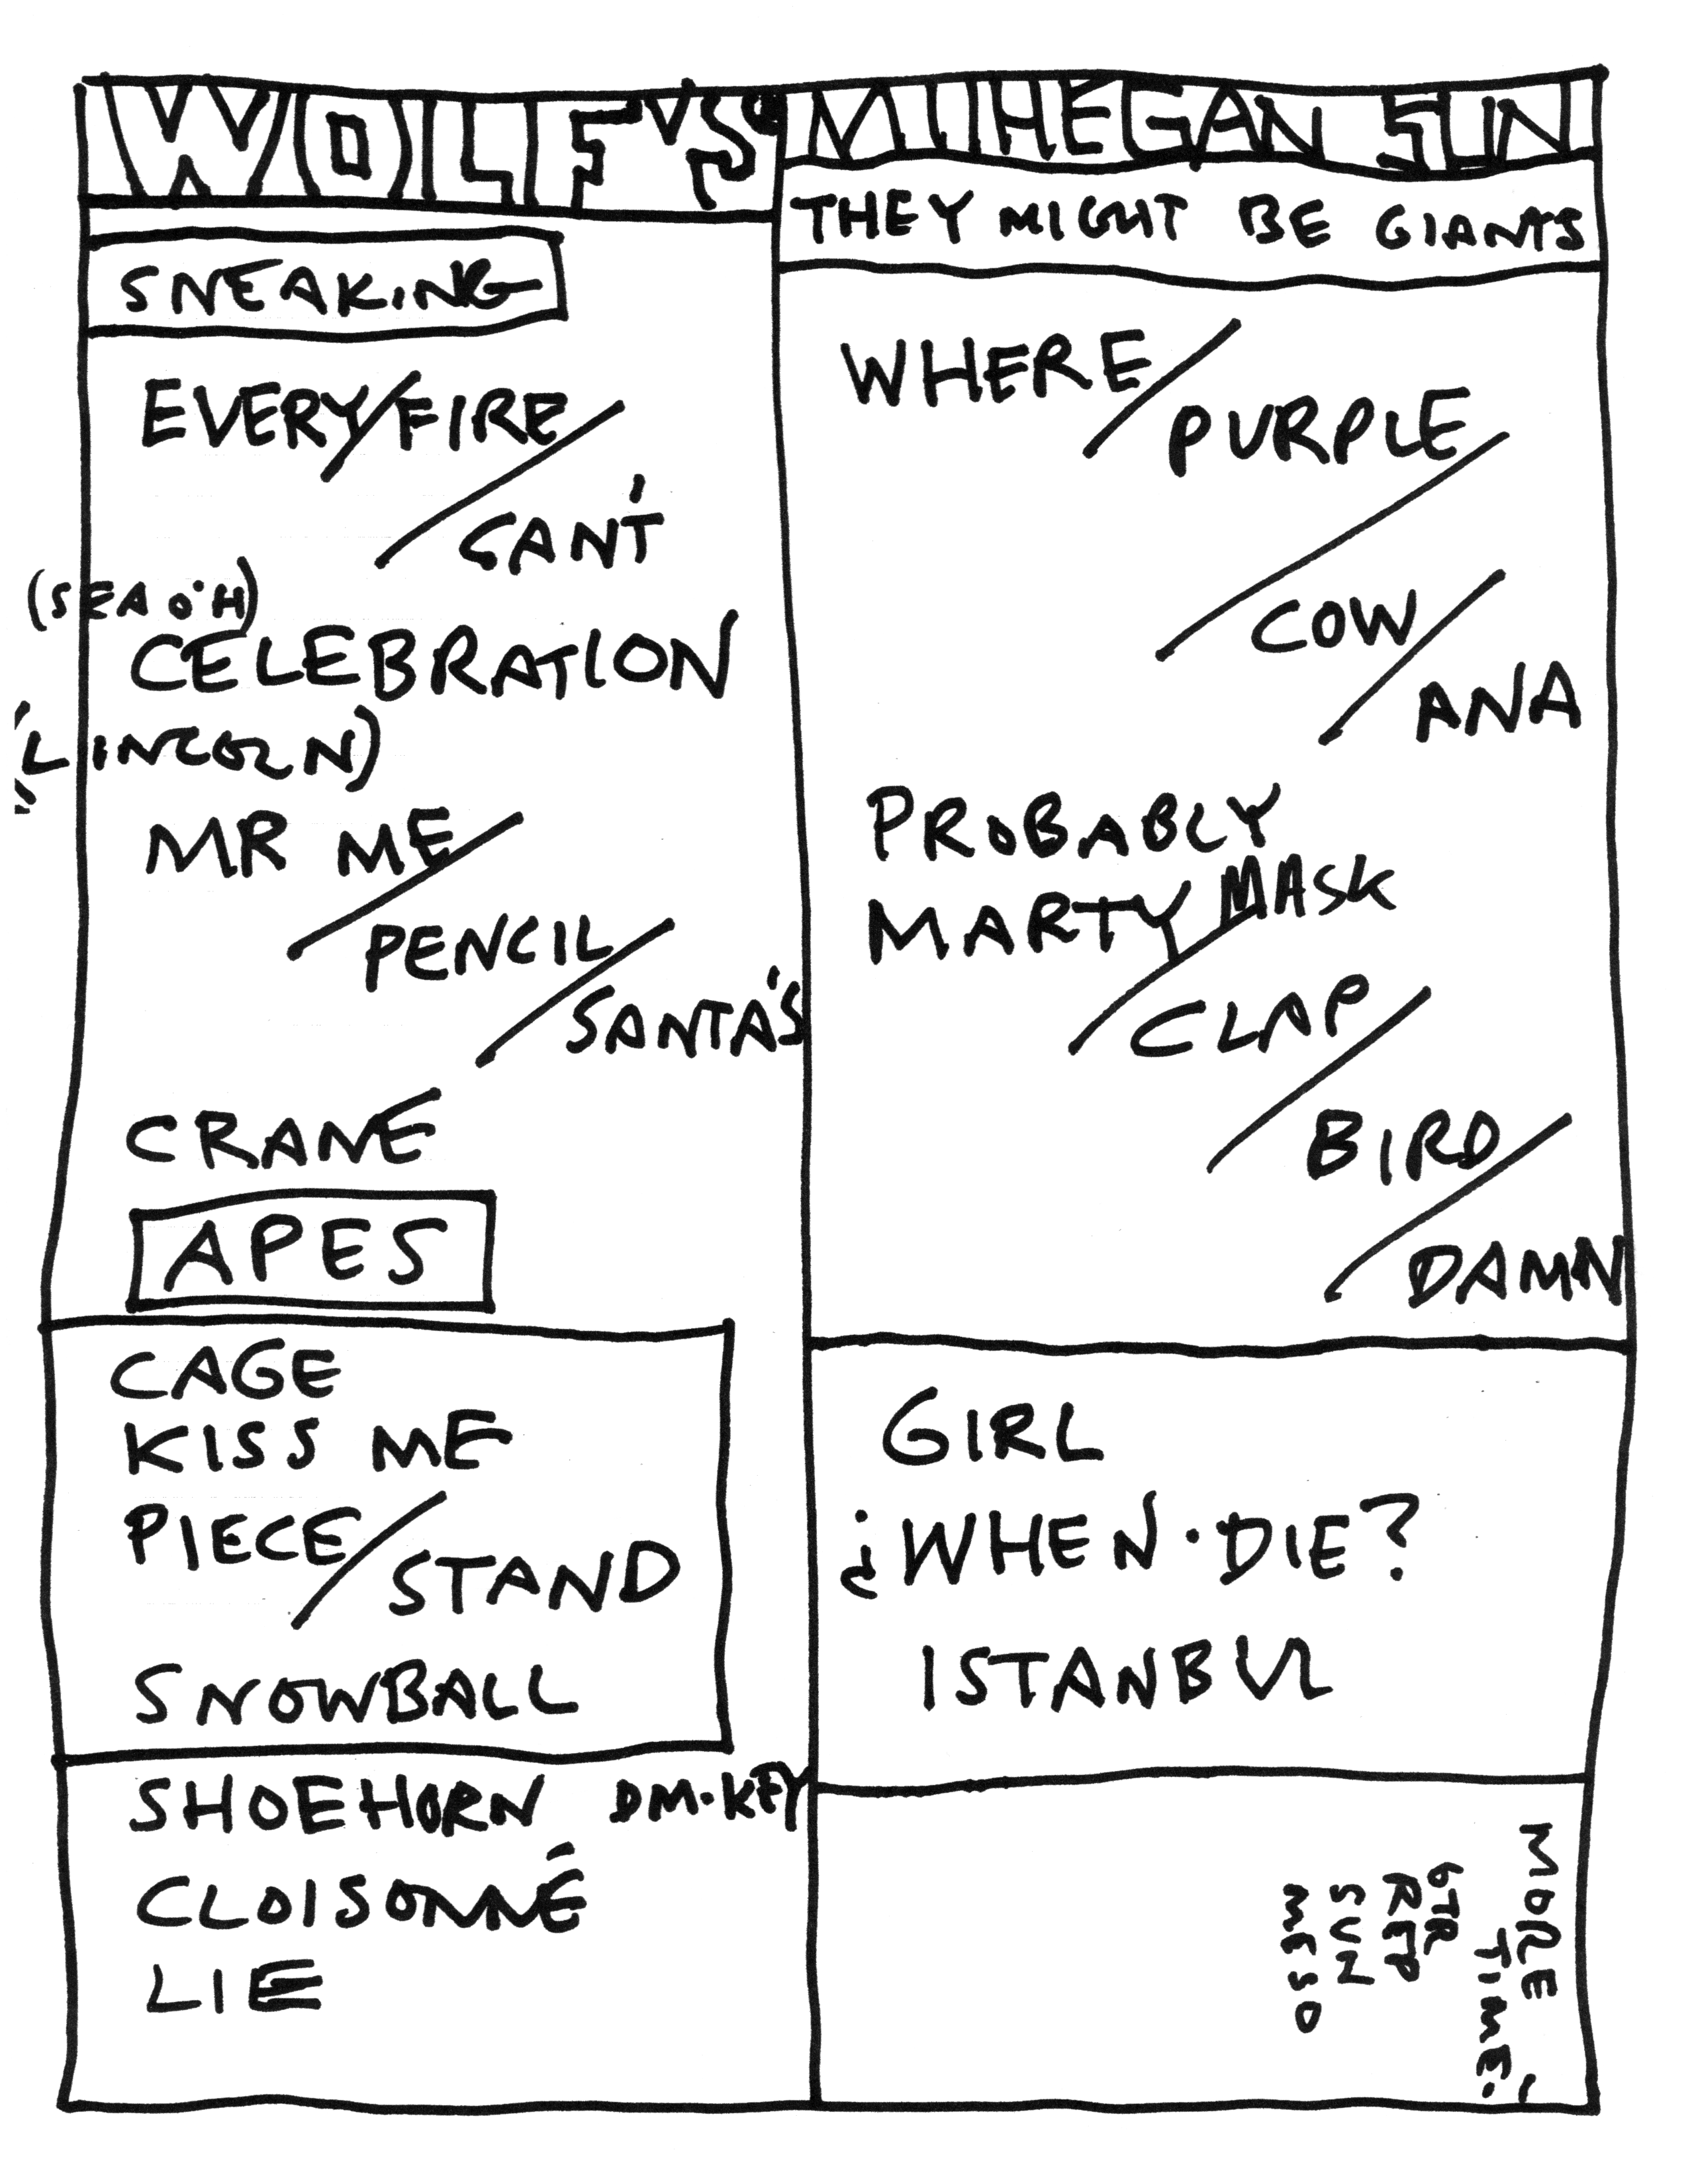 WOLF'S
SNEAKING
EVERY/FIRE/
CAN'T
(SEA O'H)
CELEBRATION
"LINCOLN)
MR ME/
PENCIL/
SANTA'S
CRANE
APES
CAGE
KISS ME
PIECE/
STAND
SNOWBALL
SHOEHORN DM·KEY
CLOISONNÉ
LIE
MIHEGAN SUN
THEY MIGHT BE GIANTS
WHERE/
PURPLE/
COW/
ANA
PROBABLY
MARTY MASK/
CLAP/
BIRD/
DAMN
GIRL
¿WHEN·DIE?
ISTANBUL
MORE
TIME: